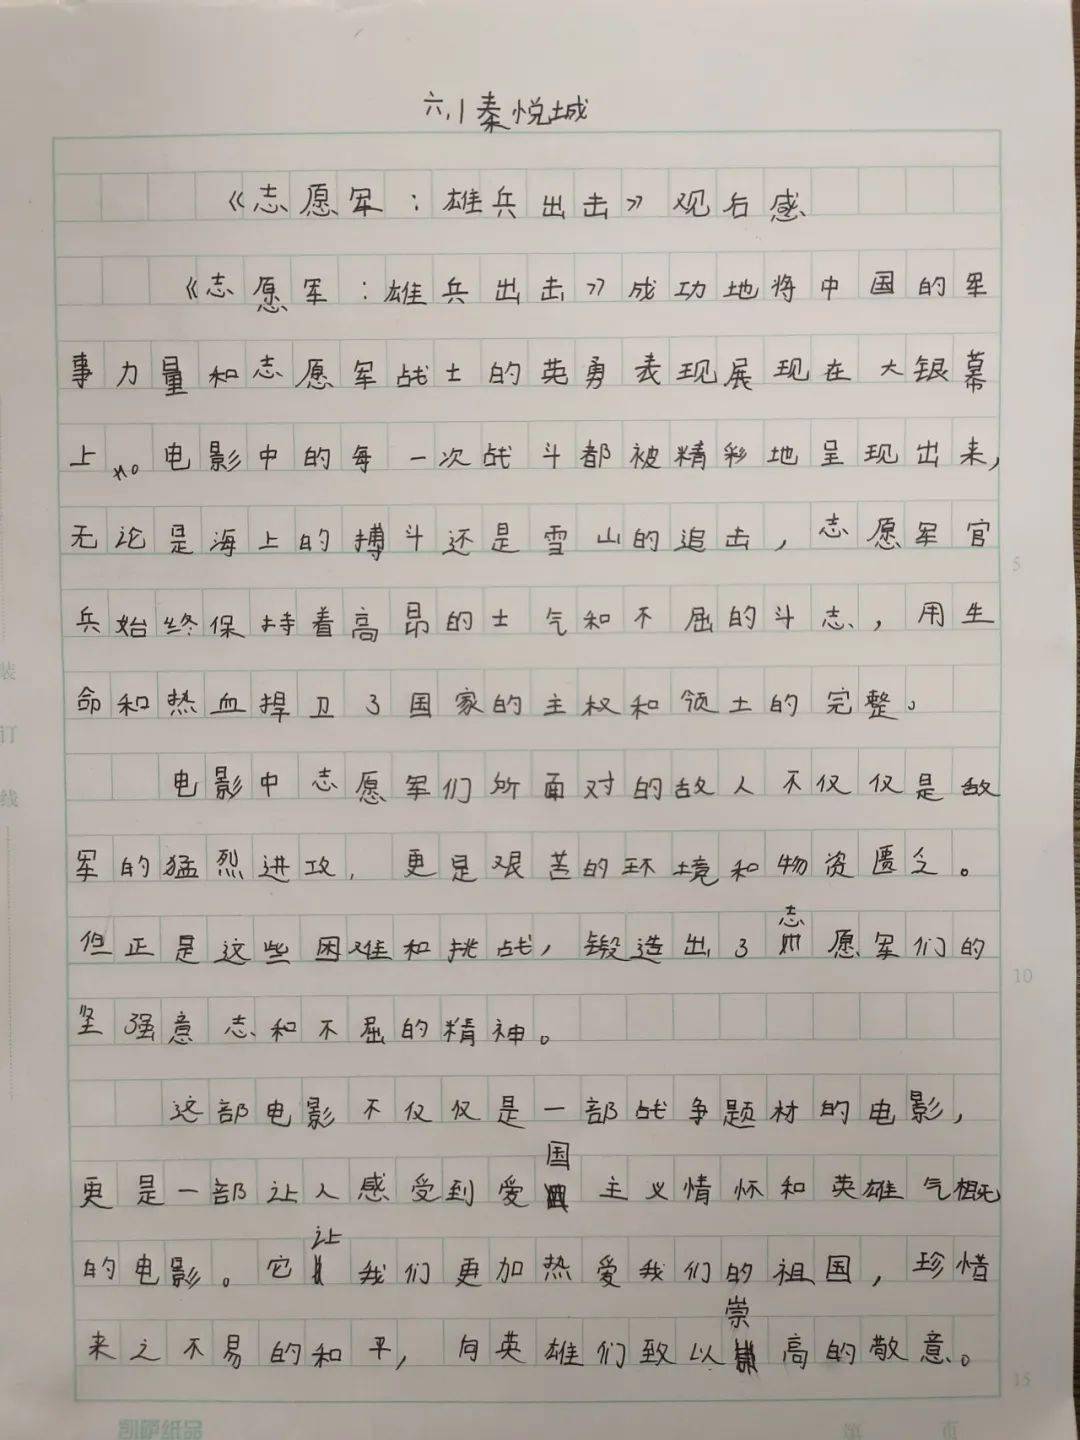 六.1秦悦城
《志愿军：雄兵出击》观后感
《志愿军：雄兵出击》成功地将中国的军
事力量和志愿军战士的英勇表现展现在大银幕
上。电影中的每一次战斗都被精彩地呈现出来,
无论是海上的搏斗还是雪山的追击，志愿军官
兵始终保持着高昂的士气和不屈的斗志，用生
命和热血捍卫了国家的主权和领土的完整。
电影中志愿军们所面对的敌人不仅仅是敌
军的猛烈进攻，更是艰苦的环境和物资匮乏。
但正是这些困难和挑战，锻造出了志愿军们的
坚强意志和不屈的精神。
这部电影不仅仅是一部战争题材的电影，
更是一部让人感受到爱国主义情怀和英雄气概
的电影。它让我们更加热爱我们的祖国，珍惜
来之不易的和平，向英雄们致以崇高的敬意。
装
订
线
5
10
15
凯萨纸品
第 页